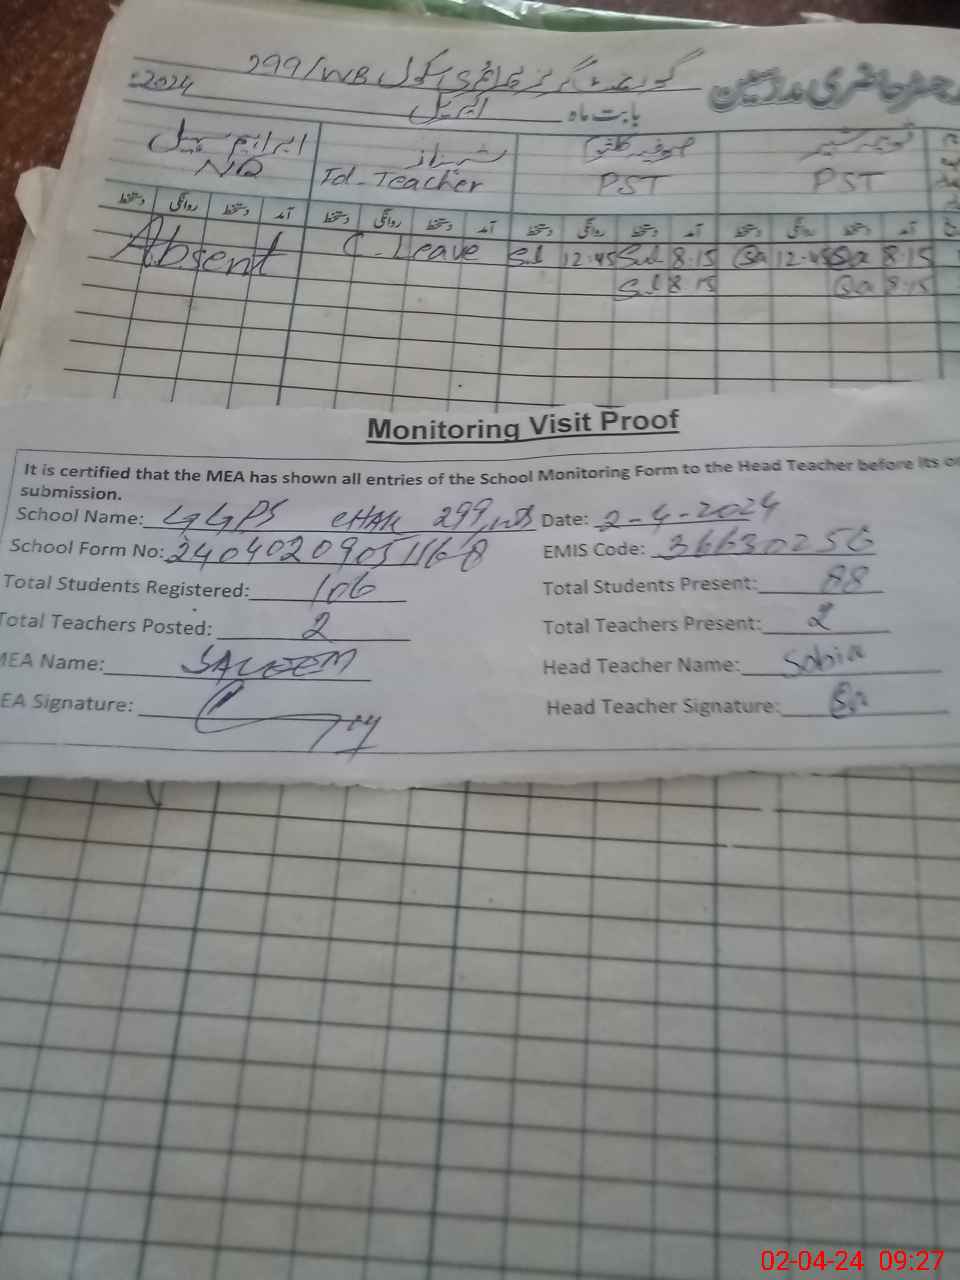 299/WB گورنمنٹ گرلز پرائمری سکول
رجسٹر حاضری مدرسین
2024 بابت ماہ اپریل
صوفیہ کلثوم شہناز
PST PST Td-Teacher NQ
آمد دستخط روانگی دستخط آمد دستخط روانگی دستخط آمد دستخط روانگی دستخط آمد دستخط روانگی دستخط
Absent C-Leave Sul 12.45 Sul 8.15 Sa 12.45 Sa 8.15
Sul 8.15 Sa 8.15
Monitoring Visit Proof
It is certified that the MEA has shown all entries of the School Monitoring Form to the Head Teacher before its
submission.
School Name: GGPS CHAK 299, WB Date: 2-4-2024
School Form No: 24040209051168 EMIS Code: 36630256
Total Students Registered: 106 Total Students Present: 88
Total Teachers Posted: 2 Total Teachers Present: 2
MEA Name: SALEEM Head Teacher Name: Sobia
EA Signature: Head Teacher Signature: Sa
02-04-24 09:27